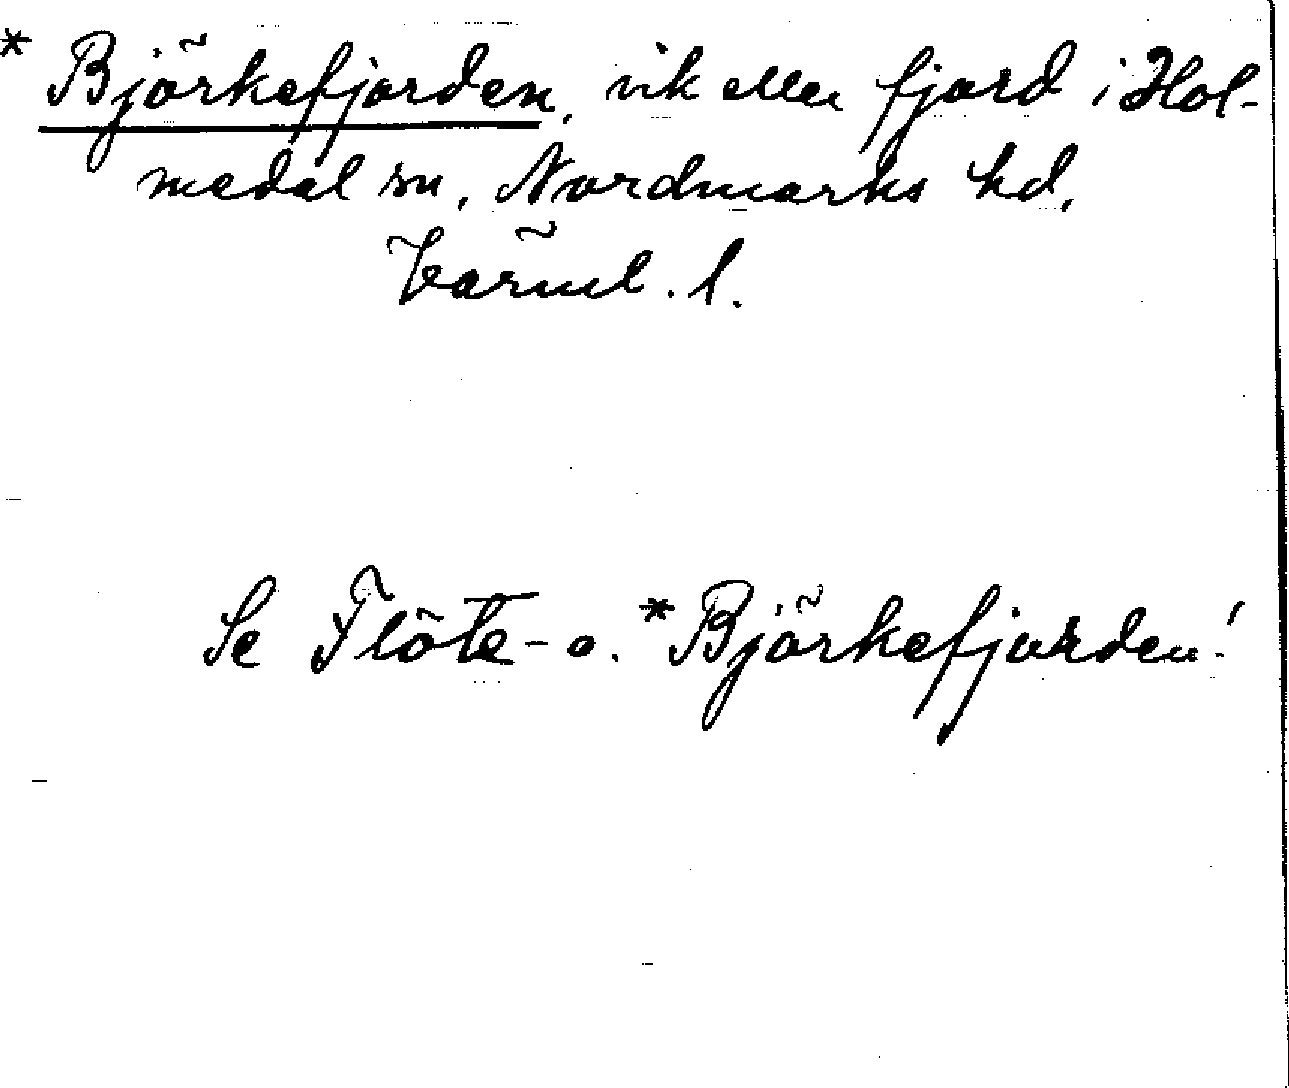 * Björkefjorden, vik eller fjord i Hol-
medal sn, Nordmarks hd,
Värml. l.
Se Flöte- o. *Björkefjorden!